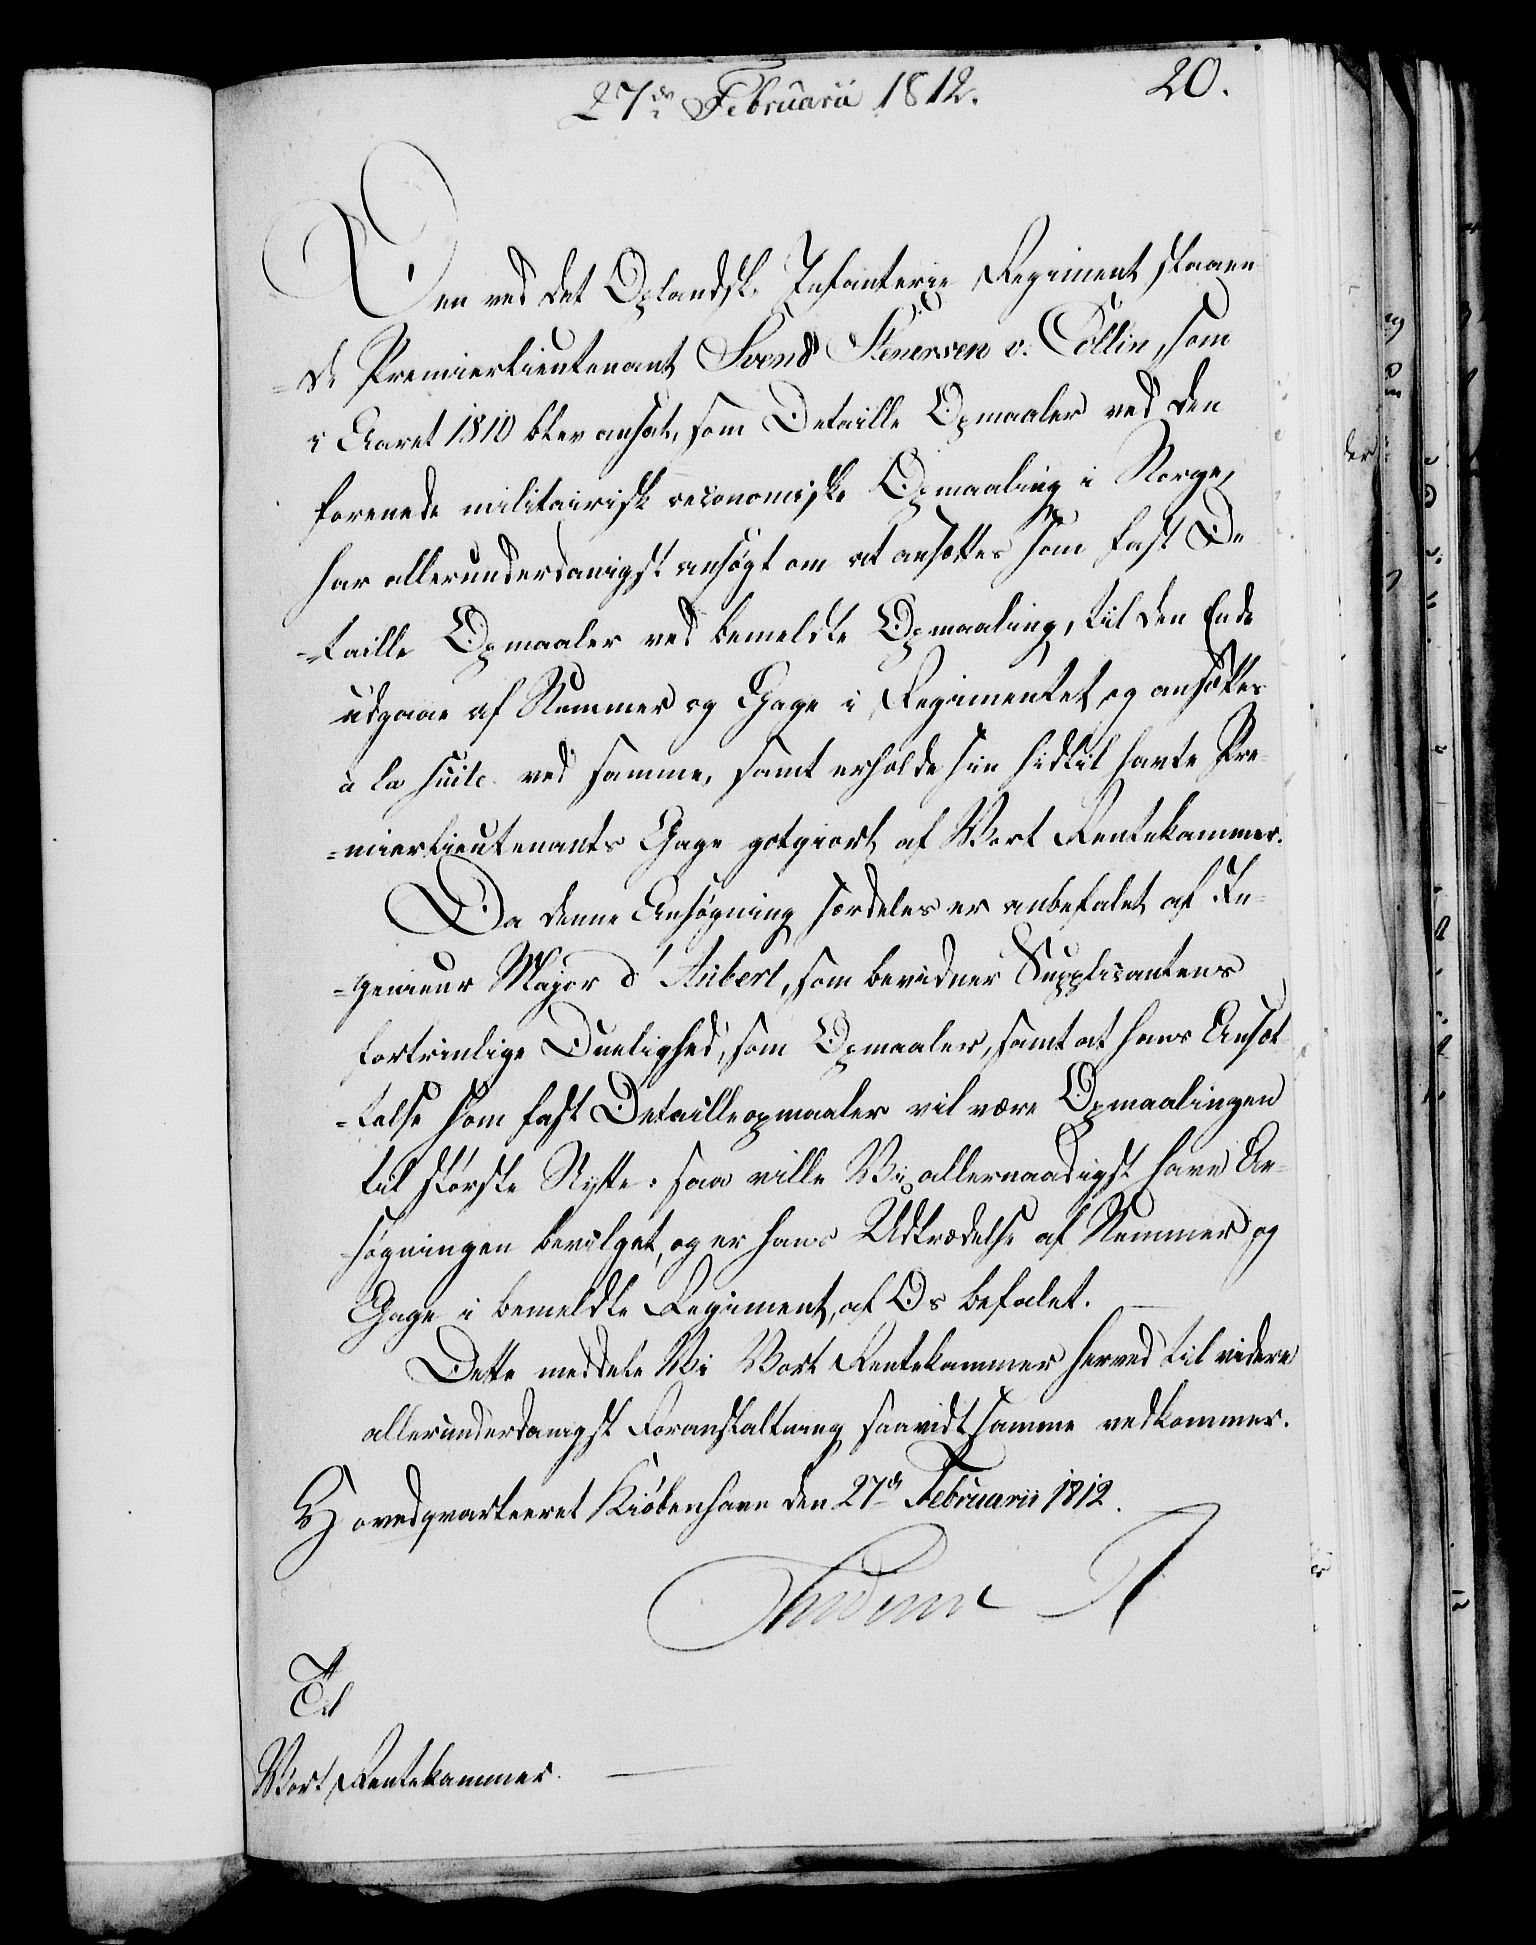 27de Februarii 1812.
20.
Den ved det Oplandske Infanterie Regiment staaen-
=de Premierlieutenant Svend Stenersen v: Cöllin, som
i Aaret 1810 blev ansat, som Detaille Opmaaler ved den
forenede militairisk oeconomiske Opmaaling i Norge,
har allerunderdanigst ansøgt om at ansættes som fast De
=taille Opmaaler ved bemeldte Opmaaling, til den Ende
udgaae af Nummer og Gage i Regimentet og ansættes
à la suite ved samme, samt erholde sin hidtil havte Pre-
=mierlieutenants Gage gotgiort af Vort Rentekammer.
Da denne Ansøgning særdeles er anbefalet af In-
=genieur Major d'Aubert, som bevidner Supplicantens
fortrinlige Duelighed, som Opmaaler, samt at hans Ansæt
=telse som fast Detailleopmaaler vil være Opmaalingen
til største Nytte: saa ville Vi allernaadigst have An-
søgningen bevilget, og er hans Udtrædelse af Nummer og
Gage i bemeldte Regiment, af Os befalet.
Dette meddele Vi Vort Rentekammer herved til videre
allerunderdanigst Foranstaltning saavidt samme vedkommer.
Hovedqvarteeret Kiöbenhavn den 27de Februarii 1812.
Frederik R
Til
Vort Rentekammer.
der